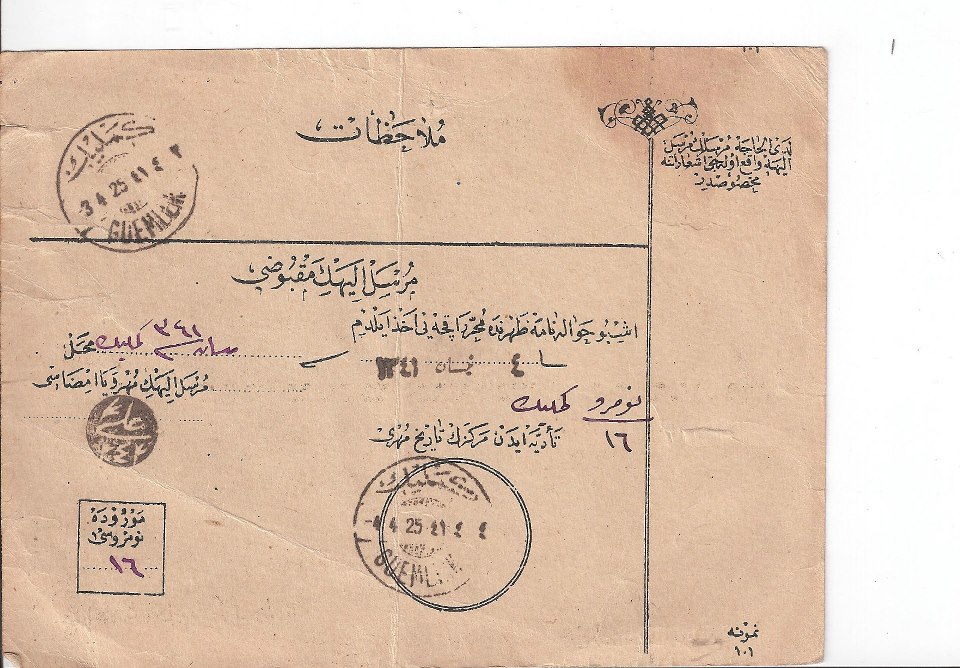 ملاحظات
لدى الحاجه مرسلك مرسل
اليهه واقع اوله جق اشعاراتنه
مخصوصدر
كمليك
3 4 25 ٤١ ٤ ٣
GUEMLEK
مرسل اليهك مقبوضى
اشبو حواله نامه ظهرنده محرر اقچه نى اخذ ايلدم
٣٤١ كمليك محل
٤ نيسان ١٣٤١
مرسل اليهك مهرى يا امضاسى
نومرو كمليك
١٦
تأديه ايدن مركزك تاريخ مهرى
كمليك
4 4 25 ٤١ ٤ ٤
GUEMLEK
موروده
نومروسى
١٦
نمونه
١٠١